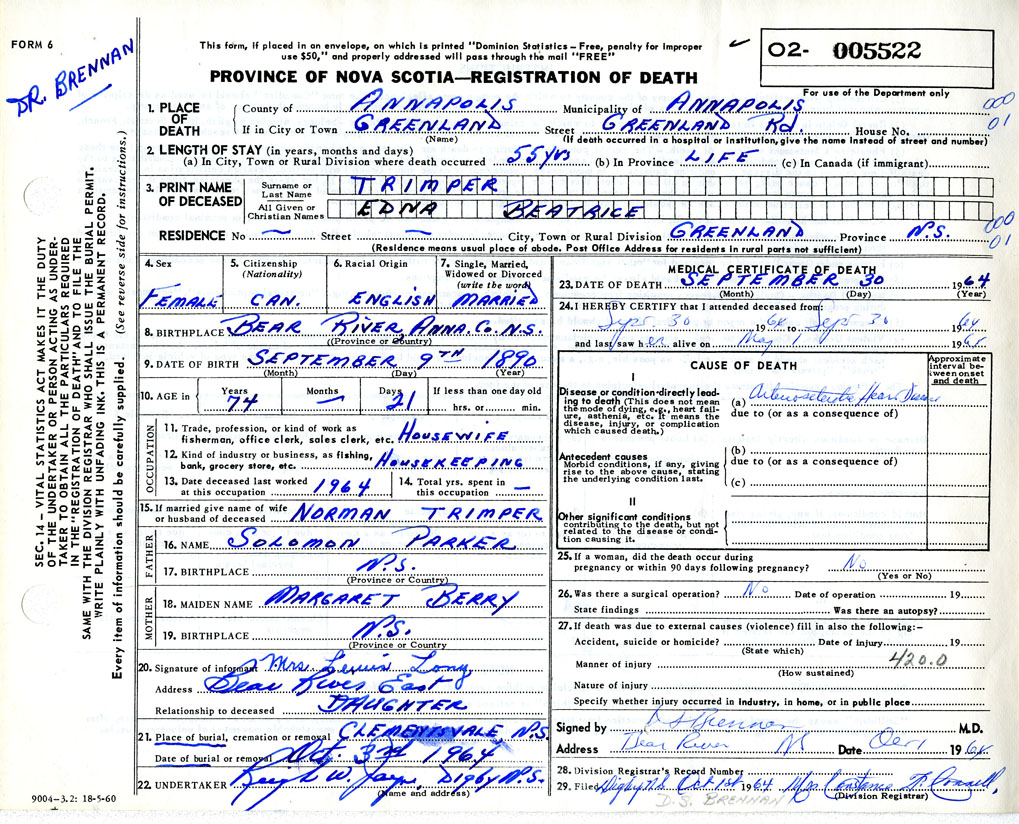 FORM 6
DR. BRENNAN
This form, if placed in an envelope, on which is printed "Dominion Statistics – Free, penalty for improper
use $50," and properly addressed will pass through the mail "FREE"
PROVINCE OF NOVA SCOTIA—REGISTRATION OF DEATH
02- 005522
For use of the Department only
000
01
SEC. 14 – VITAL STATISTICS ACT MAKES IT THE DUTY
OF THE UNDERTAKER OR PERSON ACTING AS UNDER-
TAKER TO OBTAIN ALL THE PARTICULARS REQUIRED
IN THE "REGISTRATION OF DEATH" AND TO FILE THE
SAME WITH THE DIVISION REGISTRAR WHO SHALL ISSUE THE BURIAL PERMIT.
WRITE PLAINLY WITH UNFADING INK. THIS IS A PERMANENT RECORD.
Every item of information should be carefully supplied. (See reverse side for instructions.)
1. PLACE OF DEATH
County of ANNAPOLIS Municipality of ANNAPOLIS
If in City or Town GREENLAND Street GREENLAND Rd. House No.
(Name) (If death occurred in a hospital or institution, give the name instead of street and number)
2. LENGTH OF STAY (in years, months and days)
(a) In City, Town or Rural Division where death occurred 55 yrs (b) In Province LIFE (c) In Canada (if immigrant)
3. PRINT NAME OF DECEASED
Surname or Last Name TRIMPER
All Given or Christian Names EDNA BEATRICE
RESIDENCE No — Street — City, Town or Rural Division GREENLAND Province N.S.
000
01
(Residence means usual place of abode. Post Office Address for residents in rural parts not sufficient)
4. Sex FEMALE
5. Citizenship (Nationality) CAN.
6. Racial Origin ENGLISH
7. Single, Married, Widowed or Divorced (write the word) MARRIED
8. BIRTHPLACE BEAR RIVER ANNA. CO. N.S.
(Province or Country)
9. DATE OF BIRTH SEPTEMBER 9TH 1890
(Month) (Day) (Year)
10. AGE in Years 74 Months — Days 21 If less than one day old hrs. or min.
OCCUPATION
11. Trade, profession, or kind of work as
fisherman, office clerk, sales clerk, etc. HOUSEWIFE
12. Kind of industry or business, as fishing,
bank, grocery store, etc. HOUSEKEEPING
13. Date deceased last worked at this occupation 1964
14. Total yrs. spent in this occupation —
15. If married give name of wife
or husband of deceased NORMAN TRIMPER
FATHER
16. NAME SOLOMON PARKER
17. BIRTHPLACE N.S.
(Province or Country)
MOTHER
18. MAIDEN NAME MARGARET BERRY
19. BIRTHPLACE N.S.
(Province or Country
20. Signature of informant Mrs. Lewis Long
Address Bear River East
Relationship to deceased DAUGHTER
21. Place of burial, cremation or removal CLEMENTSVALE, N.S.
Date of burial or removal Oct. 3rd 1964
22. UNDERTAKER W. Digby N.S.
(Name and address)
9004-3.2: 18-5-60
MEDICAL CERTIFICATE OF DEATH
23. DATE OF DEATH SEPTEMBER 30 1964
(Month) (Day) (Year)
24. I HEREBY CERTIFY that I attended deceased from:
Sept. 30 1964 to Sept 30 1964
and last saw her alive on May 1 1964
CAUSE OF DEATH
Approximate interval between onset and death
I
Disease or condition directly lead-
ing to death (This does not mean
the mode of dying, e.g., heart fail-
ure, asthenia, etc. It means the
disease, injury, or complication
which caused death.)
(a) Arteriosclerotic Heart Disease
due to (or as a consequence of)
Antecedent causes
Morbid conditions, if any, giving
rise to the above cause, stating
the underlying condition last.
(b)
due to (or as a consequence of)
(c)
II
Other significant conditions
contributing to the death, but not
related to the disease or condi-
tion causing it.
25. If a woman, did the death occur during
pregnancy or within 90 days following pregnancy? No
(Yes or No)
26. Was there a surgical operation? No Date of operation 19
State findings Was there an autopsy?
27. If death was due to external causes (violence) fill in also the following:-
Accident, suicide or homicide? Date of injury 19
(State which)
420.0
Manner of injury
(How sustained)
Nature of injury
Specify whether injury occurred in industry, in home, or in public place
Signed by D S Brennan M.D.
Address Bear River NS Date Oct 1 1964
28. Division Registrar's Record Number
29. Filed Digby N.S. Oct 1st 1964 Mrs Constance
(Division Registrar)
D.S. BRENNAN